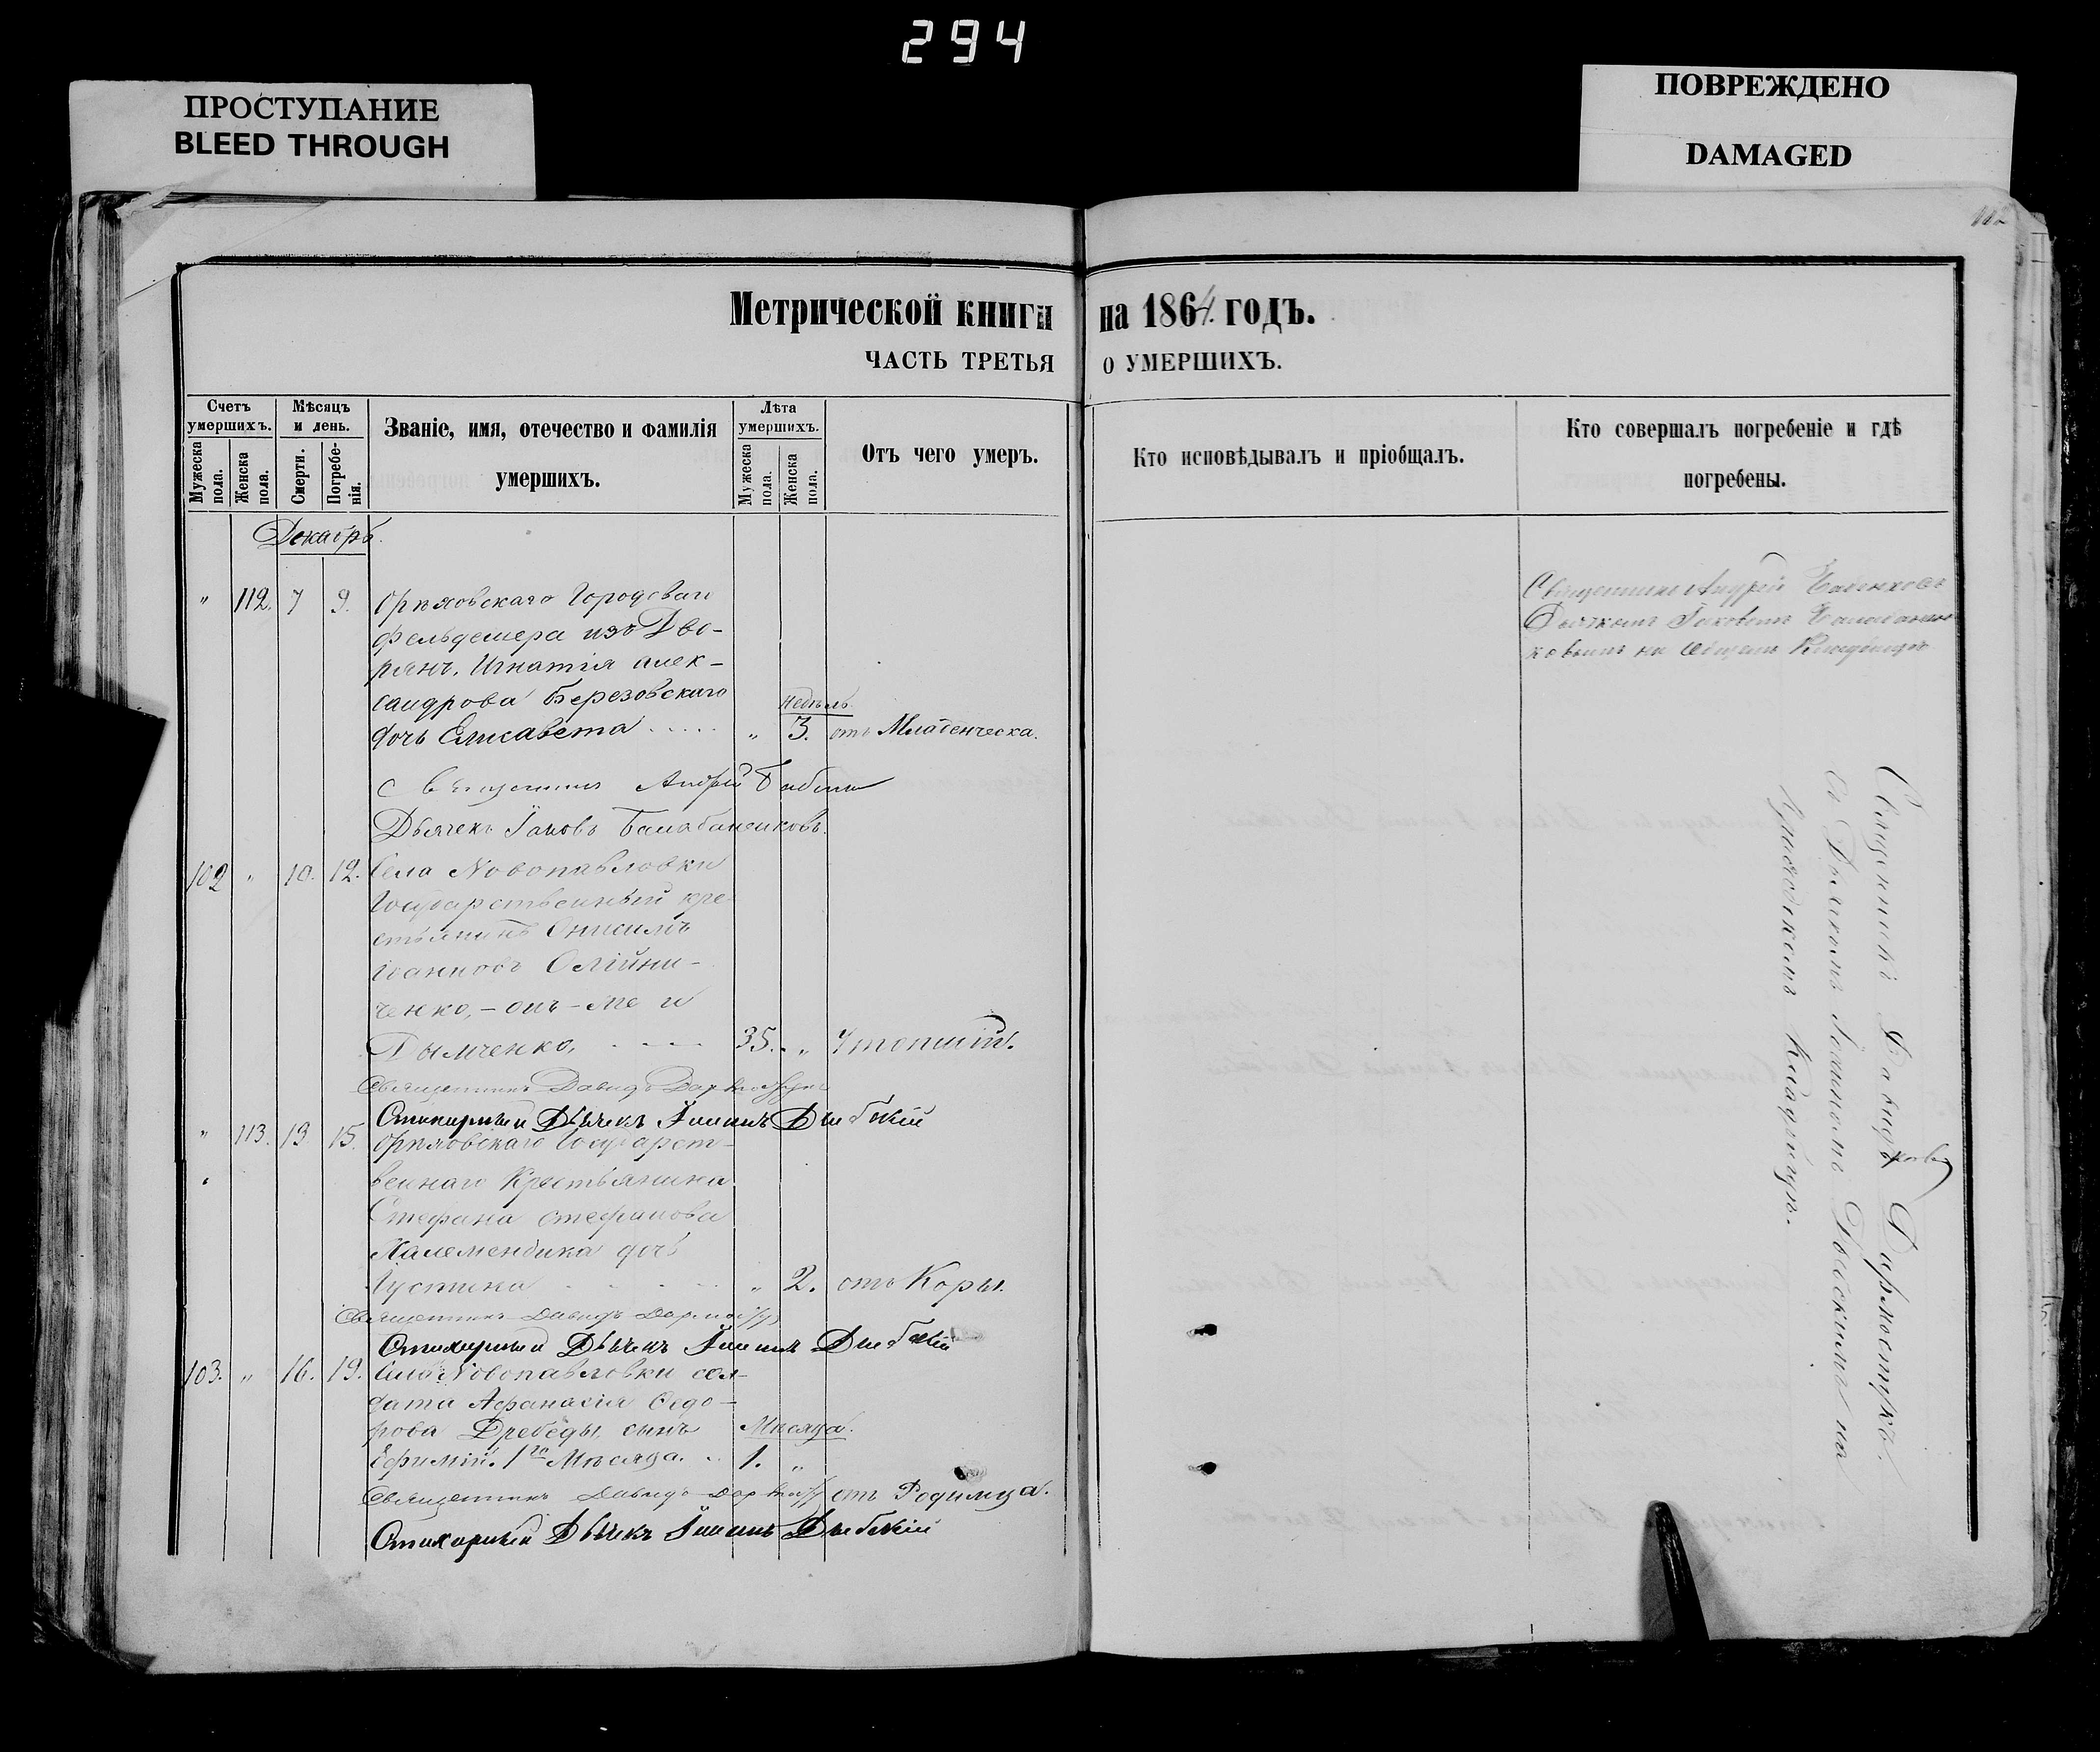 294
ПРОСТУПАНИЕ
BLEED THROUGH
ПОВРЕЖДЕНО
DAMAGED
112
Метрической книги на 1864. годъ.
ЧАСТЬ ТРЕТЬЯ О УМЕРШИХЪ.
Счетъ умершихъ.
Мужеска пола.
Женска пола.
Мѣсяцъ и день.
Смерти.
Погребенія.
Званіе, имя, отечество и фамилія умершихъ.
Лѣта умершихъ.
Мужеска пола.
Женска пола.
Отъ чего умеръ.
Кто исповѣдывалъ и пріобщалъ.
Кто совершалъ погребеніе и гдѣ погребены.
Декабрь.
" 112. 7 9. Орѣховскаго Городоваго
фельдшера изъ Дво-
рянъ. Игнатія Алек-
сандрова Березовскаго
недѣль
дочь Елисавета ..... " 3. отъ Младенческа.
Священникъ Андрей
Дьячекъ Іаковъ Балабаненковъ.
Священникъ Андрей
Дьячкомъ Іаковомъ Балабанен-
ковымъ на общемъ Кладбищѣ
102 " 10. 12. Села Новопавловки
Государственный кре-
стьянинъ Онисимъ
Іоанновъ Олійни-
ченко, - онъ-же и
35. " Утопшій.
Священникъ Давидъ
Стихарный Дьячекъ Іоаннъ
" 113. 13 15. Орѣховскаго Государст-
веннаго Крестьянина
Стефана Стефанова
дочь
Іустина " 2. отъ Коры.
Священникъ Давидъ
Стихарный Дьячекъ Іоаннъ
103. " 16. 19. Села Новопавловки сол-
дата Афанасія Сидо-
рова Дребеды, сынъ Мѣсяца.
Ефимій. 1го Мѣсяца. .. 1. "
Священникъ Давидъ отъ Родимца.
Стихарный Дьячекъ Іоаннъ
Священникъ Давидъ Дармостукъ
съ Дьячкомъ Іоанномъ на
Кладбищѣ.